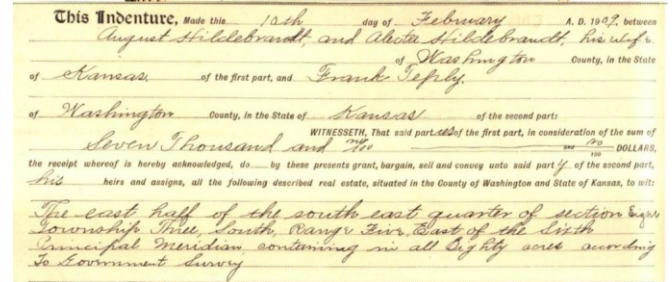 This Indenture, Made this 10th day of February A. D. 1909, between
August Hildebrandt, and Alvta Hildebrandt, his wife
of Washington County, in the State
of Kansas. of the first part, and Frank Teply.
of Washington County, in the State of Kansas of the second part:
WITNESSETH, That said parties of the first part, in consideration of the sum of
Seven Thousand and no/100 and no/100 DOLLARS,
the receipt whereof is hereby acknowledged, do by these presents grant, bargain, sell and convey unto said party of the second part,
his heirs and assigns, all the following described real estate, situated in the County of Washington and State of Kansas, to wit:
The east half of the south east quarter of section Eight
Township Three, South, Range Five, East of the Sixth
Principal Meridian, containing in all Eighty acres according
To Government Survey